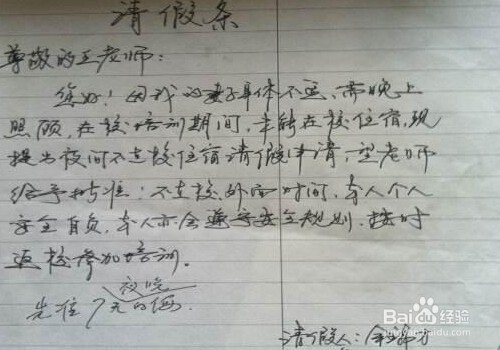 请假条
尊敬的王老师：
您好！因我的妻子身体不适、需晚上
照顾，在校培训期间，未能在校住宿，现
提出夜间不在校住宿请假申请，望老师
给予批准！不在校外宿时间，本人个人
安全自负，本人亦会遵守安全规则，按时
返校参加培训。
夜晚
先住7天的俩.
请假人：
Bai度经验
jingyan.baidu.com